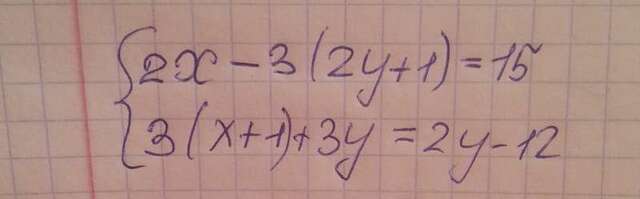 2x - 3(2y+1) = 15
3(x+1)+3y = 2y-12